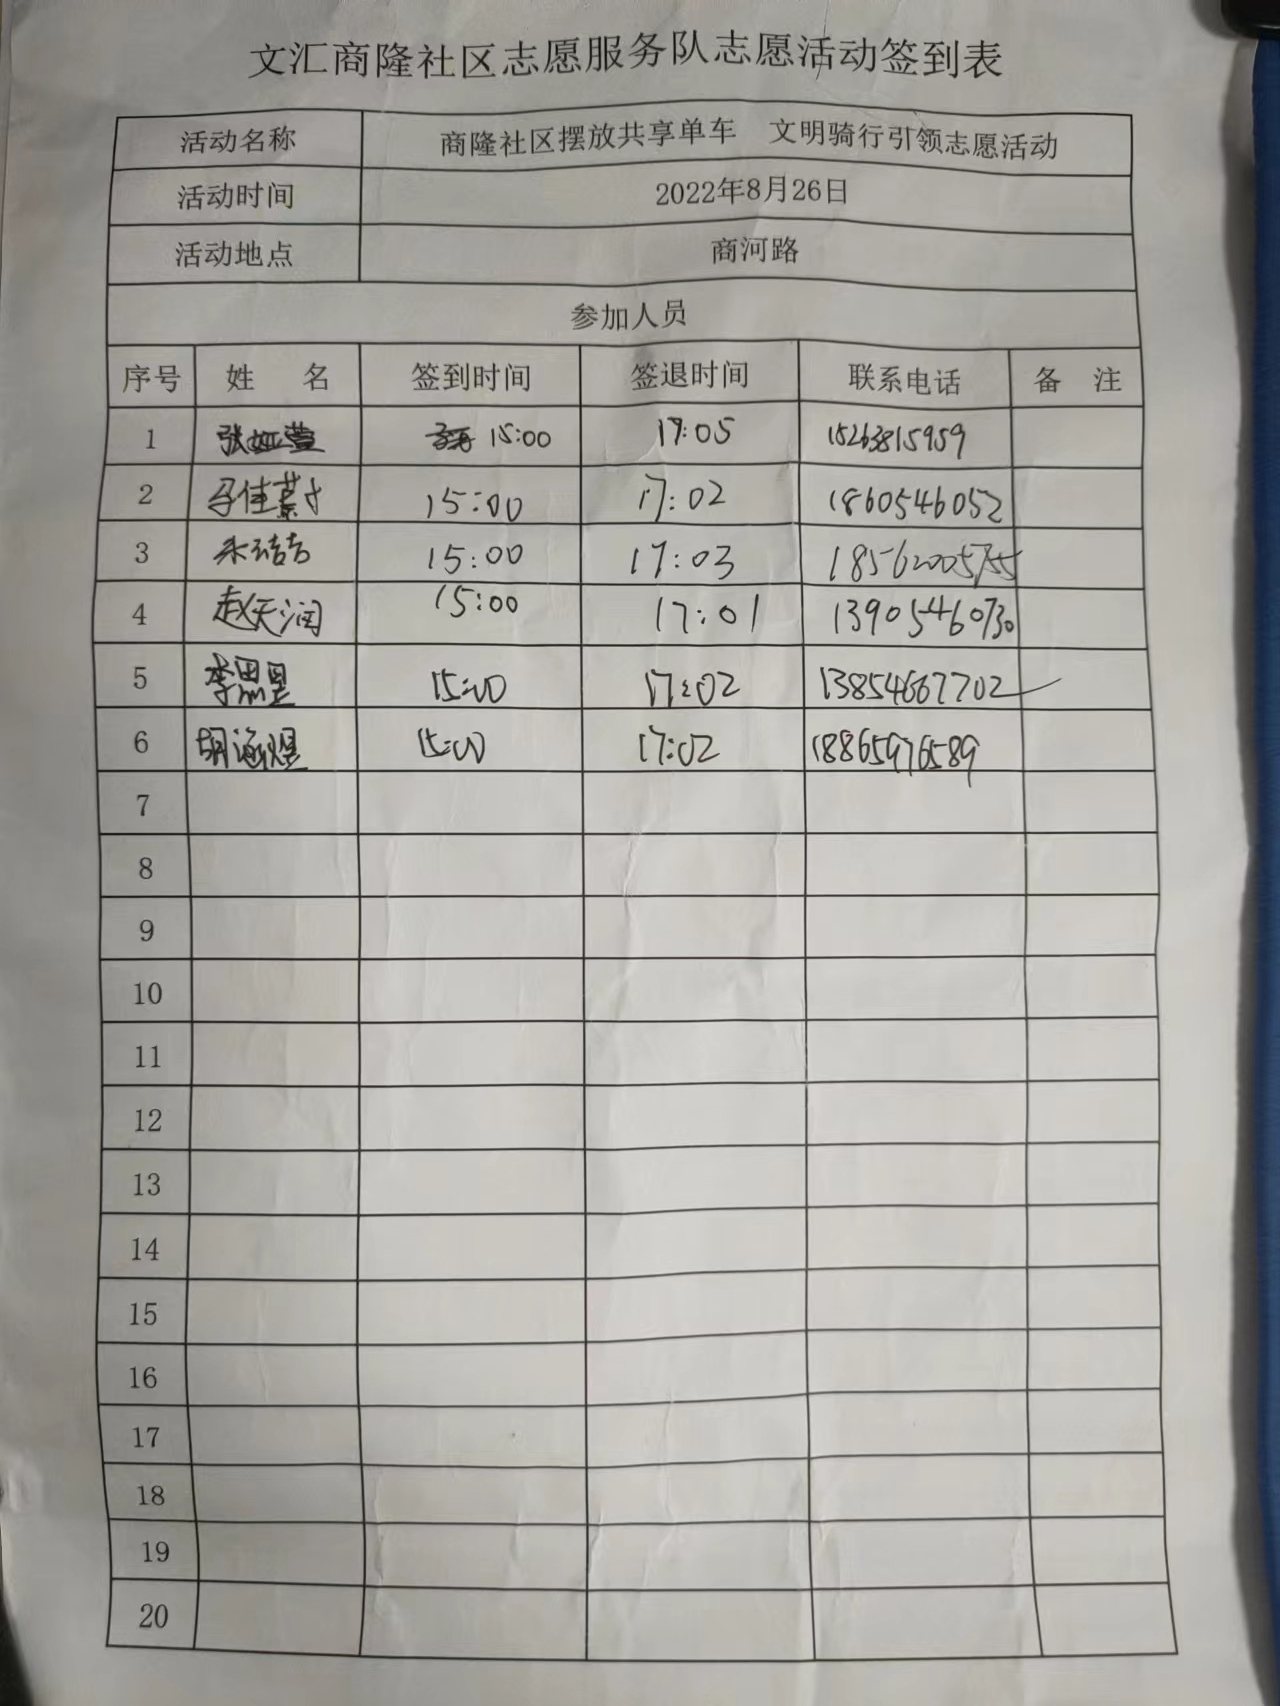 文汇商隆社区志愿服务队志愿活动签到表
活动名称 商隆社区摆放共享单车 文明骑行引领志愿活动
活动时间 2022年8月26日
活动地点 商河路
参加人员
序号 姓 名 签到时间 签退时间 联系电话 备 注
1 张娅萱 15:00 17:05 15263815959
2 15:00 17:02 1860546052
3 15:00 17:03 18562005755
4 赵天润 15:00 17:01 13905460730
5 李思昱 15:00 17:02 13854667702
6 胡涵煜 15:00 17:02 18865976589
7
8
9
10
11
12
13
14
15
16
17
18
19
20